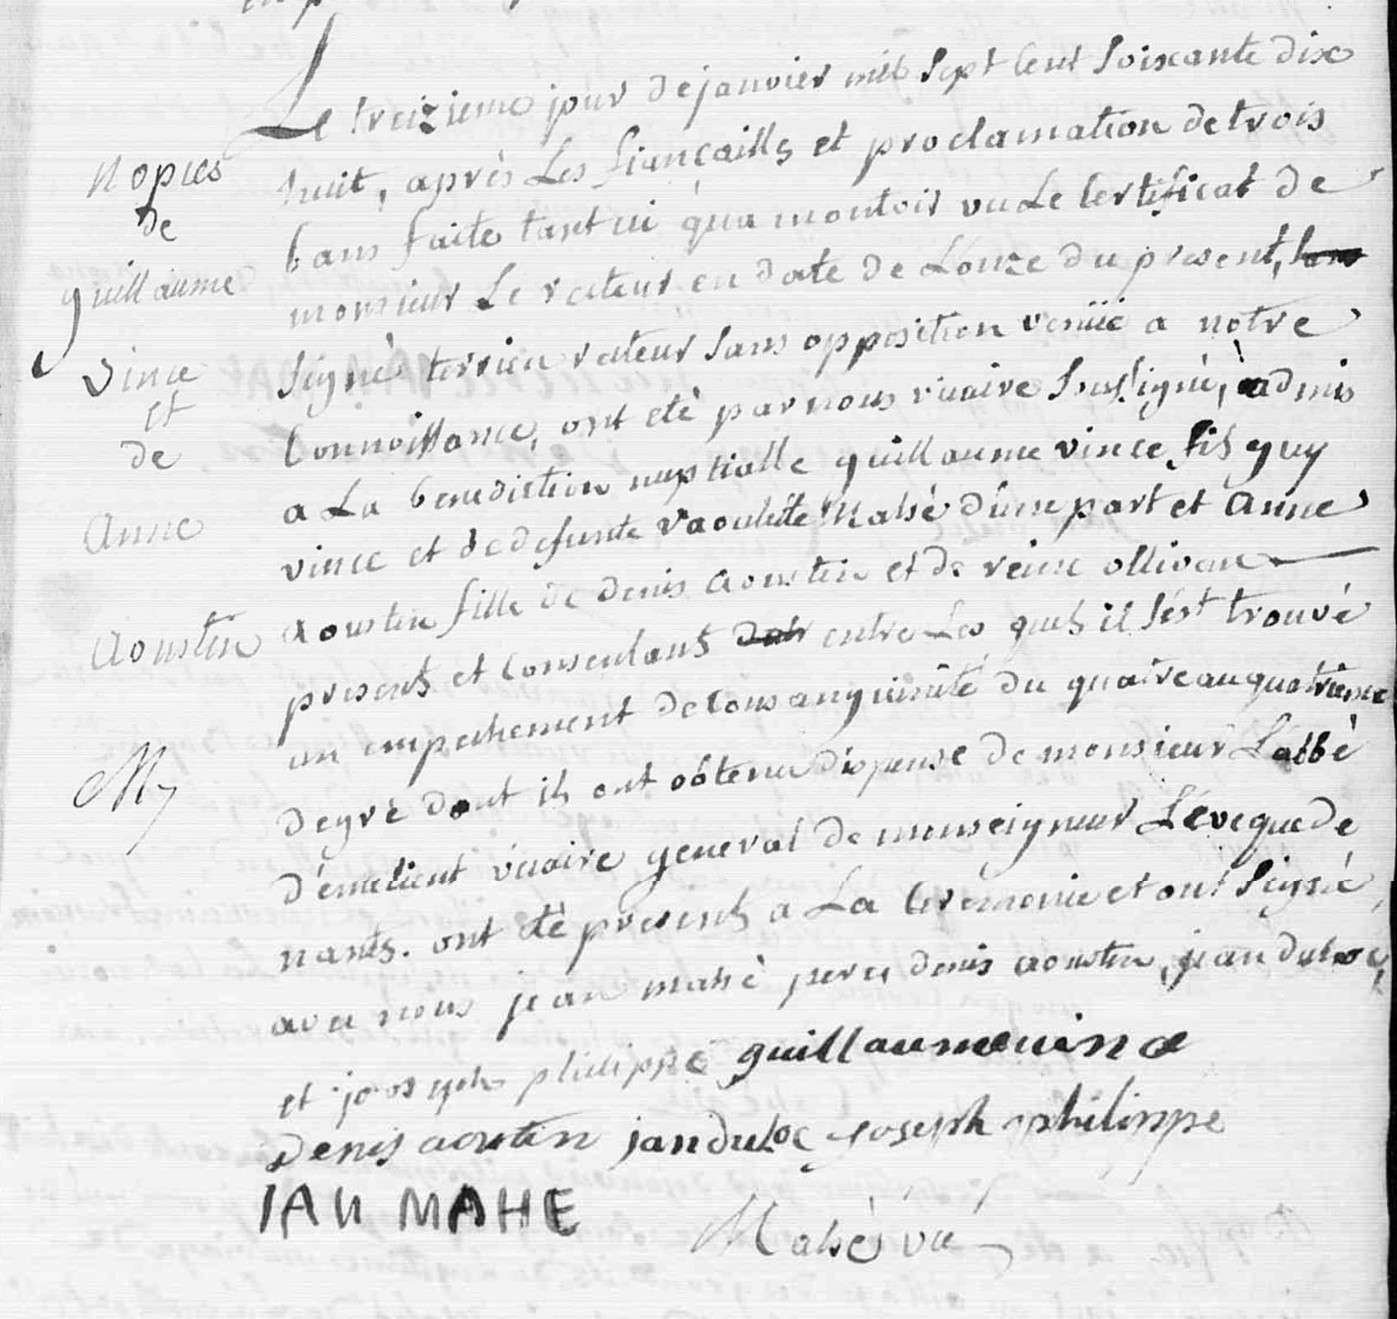 Le treizieme jour de janvier mil sept cent soixante dix
nopces
huit, après Les fiançaills et proclamation de trois
de
bans faite tant ici qu'a montoir vu Le certificat de
guillaume
monsieur Le recteur en date de L'onze du present,
vince
signè terrien recteur sans opposition venüe a notre
et
connoissance, ont etè par nous vicaire soussignè, admis
de
a La benediction nuptialle guillaume vince fils guy
Anne
vince et de defunte raoulete Mahè d'une part et Anne
Aoustin
Aoustin fille de denis Aoustin et de reine olliveau
presents et consentants entre Les quels il s'est trouvé
un empechement de consanguinité du quatre au quatrieme
My
degré dont ils ont obtenu dispense de monsieur L'abbè
vicaire general de monseigneur L'eveque de
nants. ont etè presents a La ceremonie et ont signé
avec nous jean mahè pere, denis aoustin, jean duloc,
et joseph philippe guillaume vince
Denis aoutin jan duloc joseph philippe
IAN MAHE
Mahè vic